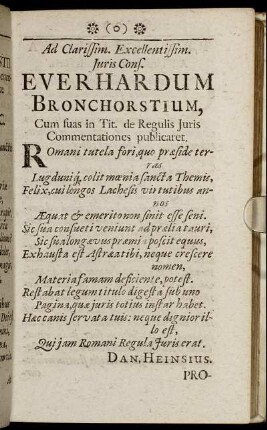 ❊ (o) ❊
Ad Clarissim. Excellentissim.
Juris Cons.
EVERHARDUM
BRONCHORSTIUM,
Cum suas in Tit. de Regulis Juris
Commentationes publicaret.
Romani tutela fori, quo præside ter-
ras
Lugduniq́, colit mœnia sancta Themis,
Felix, cui longos Lachesis virtutibus an-
nos
Æquat & emerito non sinit esse seni.
Sic sua consueti veniunt ad prælia tauri,
Sic sua longævus præmia poscit equus,
Exhausta est Astræa tibi, neque crescere
nomen,
Materia famam deficiente, potest.
Restabat legum titulo digesta sub uno
Pagina, quæ juris totius instar habet.
Hæc canis servata tuis: neque dignior il-
lo est,
Qui jam Romani Regula Juris erat.
DAN. HEINSIUS.
PRO-